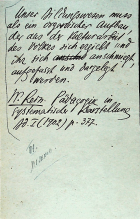 Unser Bildungswesen muss
als ein organischer Aufbau
der aus der Kulturarbeit
des Volkes sich ergibt und
ihr sich anschmiegt,
aufgefasst und dargelegt
werden.
W. Rein. Pädagogik in
systematischer Darstellung
Bd I (1902) p. 377.